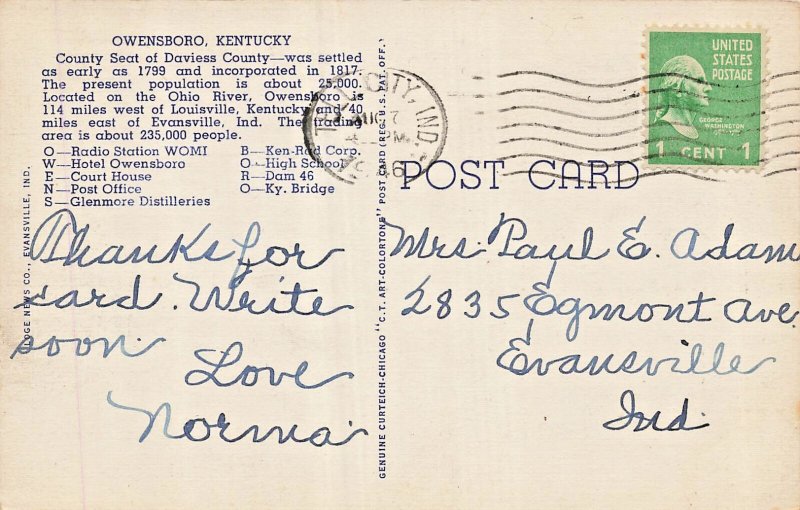 OWENSBORO, KENTUCKY
County Seat of Daviess County—was settled
as early as 1799 and incorporated in 1817.
The present population is about 25,000.
Located on the Ohio River, Owensboro is
114 miles west of Louisville, Kentucky and 40
miles east of Evansville, Ind. The trading
area is about 235,000 people.
O—Radio Station WOMI
W—Hotel Owensboro
E—Court House
N—Post Office
S—Glenmore Distilleries
B—Ken-Rad Corp.
O—High School
R—Dam 46
O—Ky. Bridge
Thanks for
card. Write
soon.
Love
Norma.
NEWS CO., EVANSVILLE, IND.
GENUINE CURTEICH-CHICAGO "C.T. ART-COLORTONE" POST CARD (REG. U.S. PAT. OFF.)
CITY, IND.
AUG 7
46
UNITED
STATES
POSTAGE
GEORGE
WASHINGTON
1 CENT 1
POST CARD
Mrs. Paul E. Adam
2835 Egmont Ave.
Evansville
Ind.